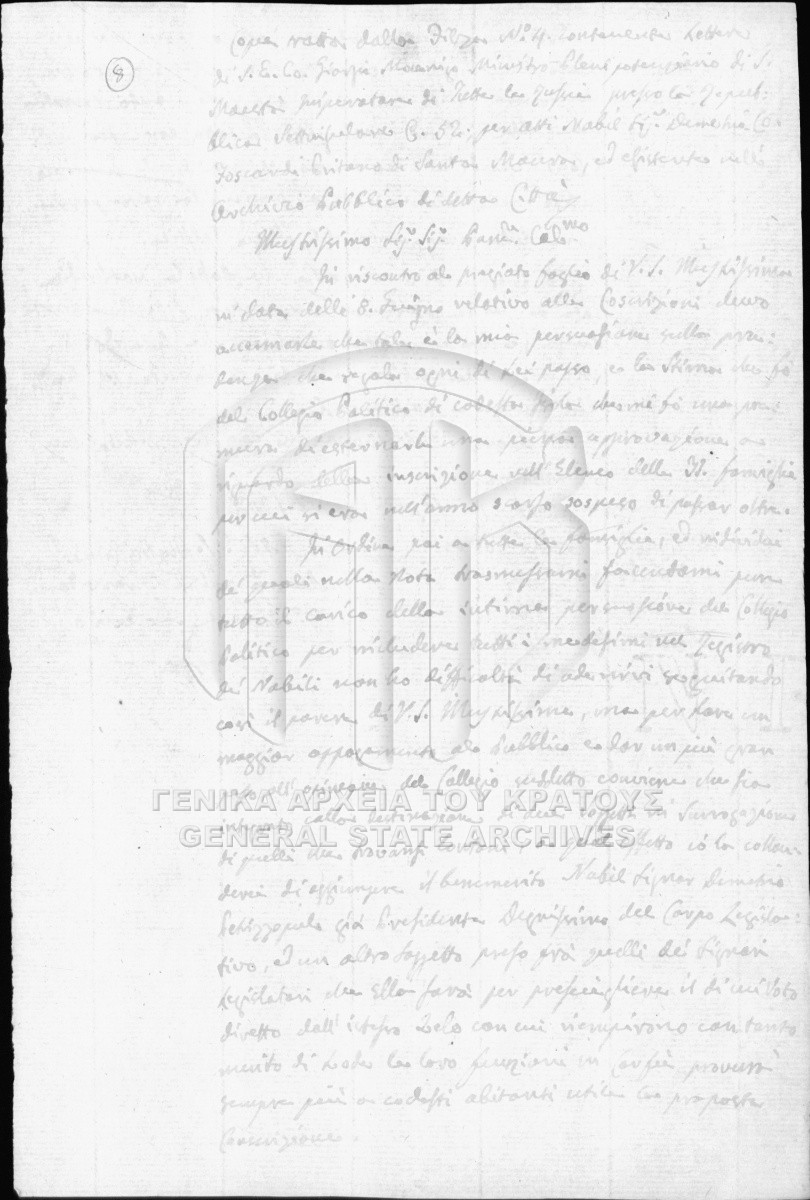 8
Copia tratta dalla Filza N.º 4. contenente Lettere
di S. E. Co. Giorgio Mocenigo Ministro Plenipotenziario di S.
Maestà Imperatore di Tutte le Russie presso la Repub:
blica Settinsulare C. 52. per atti Nobil Sig.r Demetrio Co.
Foscardi Pritano di Santa Maura, ed esistente nell'
Archivio Pubblico di detta Città
Illustrissimo Sig.r Sig.r
In riscontro al pregiato foglio di V. S. Illustrissima
in data delli 8. Giugno relativo alla Coscrizione devo
accennarle che tale è la mia persuasione sulla pru:
denza che regola ogni di Lei passo, e la Stima che fò
del Collegio Politico di codesta Isola che mi fò una pre:
mura di esternarle una piena approvazione a
riguardo della inscrizione nell'Elenco delle famiglie
per cui si era nell'anno scorso sospeso di passar oltre.
In Ordine poi a tutte le famiglie, ed individui
de' quali nella Nota trasmessami facendomi pure
tutto il carico della intima persuasione del Collegio
Politico per includere tutti i medesimi nel Registro
de' Nobili non ho difficoltà di aderirvi seguitando
così il parere di V. S. Illustrissima, ma per dare un
maggior appagamento al Pubblico e dar un più gran
peso all'opinione del Collegio suddetto conviene che sia
alla destinazione di due soggetti in Surrogazione
di quelli che trovansi a quale effetto io la
di aggiungere il benemerito Nobil Signor Demetrio
Petrizzopulo già Presidente Degnissimo del Corpo Legisla:
tivo, ed un altro Soggetto preso frà quelli dei Signori
Legislatori che Ella sarà per presciegliere il di cui Voto
diretto dall'istesso Zelo con cui riempirono con tanto
merito di Lode le loro funzioni in Corfù procurerà
sempre più a codesti abitanti utile la proposta
Coscrizione.
ΓΕΝΙΚΑ ΑΡΧΕΙΑ ΤΟΥ ΚΡΑΤΟΥΣ
GENERAL STATE ARCHIVES